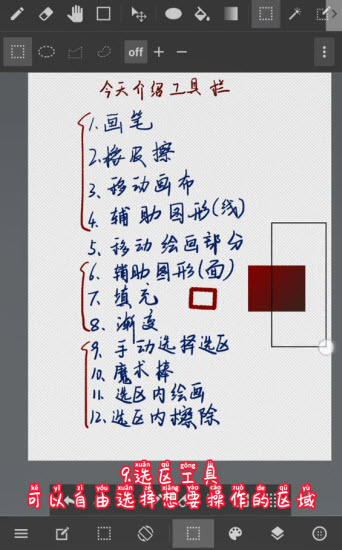 off
今天介绍工具栏
1.画笔
2.橡皮擦
3.移动画布
4.辅助图形(线)
5.移动绘画部分
6.辅助图形(面)
7.填充
8.渐变
9.手动选择选区
10.魔术棒
11.选区内绘画
12.选区内擦除
xuǎn qū gōng jù
9.选区工具
kě yǐ zì yóu xuǎn zé xiǎng yào cāo zuò de qū yù
可以自由选择想要操作的区域